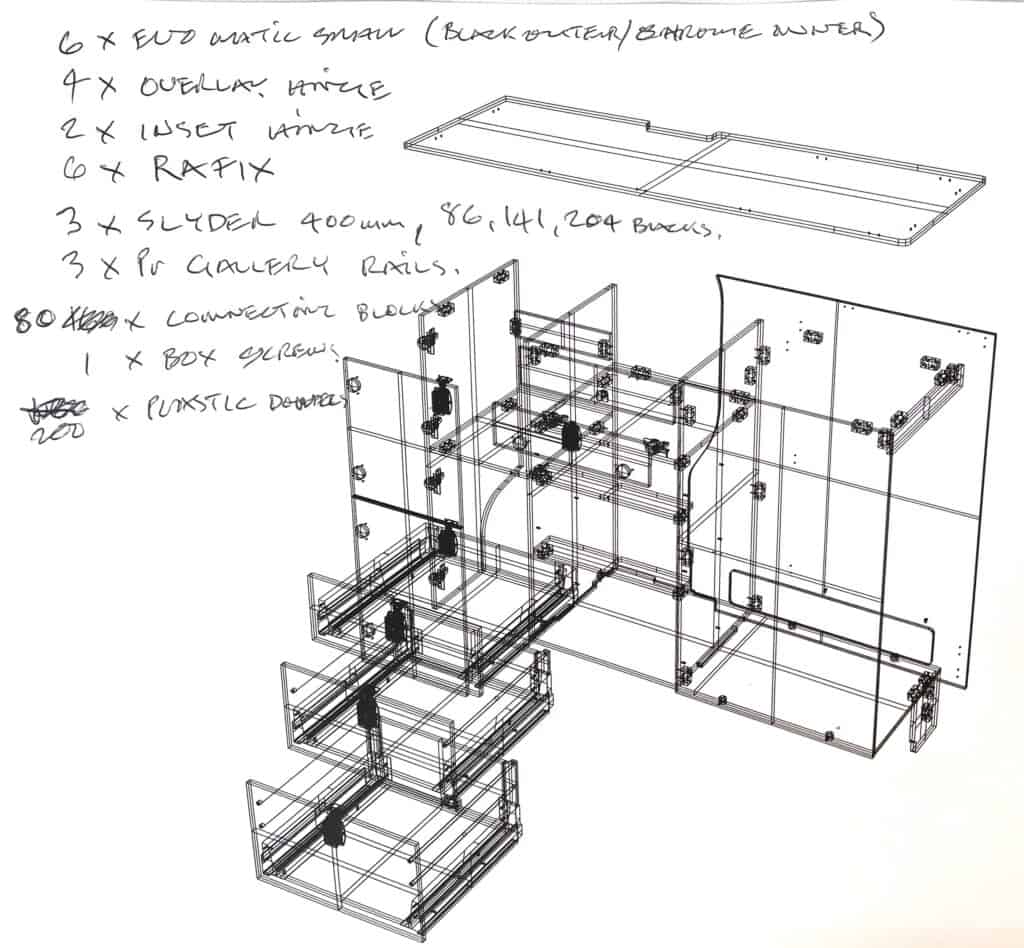 6 x EVO MATIC SMALL (BLACK OUTER/CHROME INNER)
4 x OVERLAY HINGE
2 x INSET HINGE
6 x RAFIX
3 x SLYDER 400mm, 86, 141, 204 BLACKS.
3 x Pr GALLERY RAILS.
80 x CONNECTING BLOCKS
1 x BOX SCREWS
200 x PLASTIC DOWELS